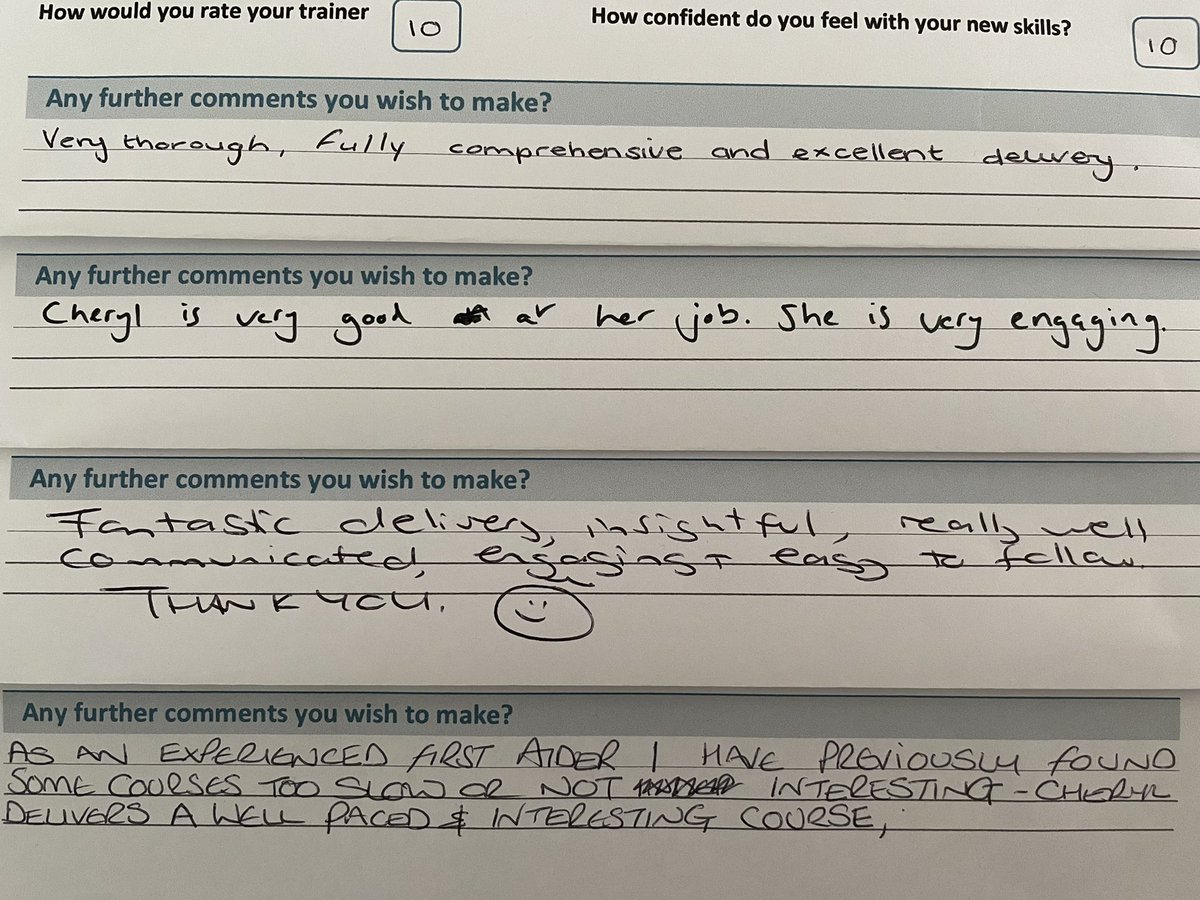 How would you rate your trainer 10 How confident do you feel with your new skills? 10
Any further comments you wish to make?
Very thorough, fully comprehensive and excellent delivery.
Any further comments you wish to make?
Cheryl is very good at her job. She is very engaging.
Any further comments you wish to make?
Fantastic delivery, insightful, really well
communicated, engaging + easy to follow.
THANK YOU.
Any further comments you wish to make?
AS AN EXPERIENCED FIRST AIDER I HAVE PREVIOUSLY FOUND
SOME COURSES TOO SLOW OR NOT INTERESTING - CHERYL
DELIVERS A WELL PACED & INTERESTING COURSE,